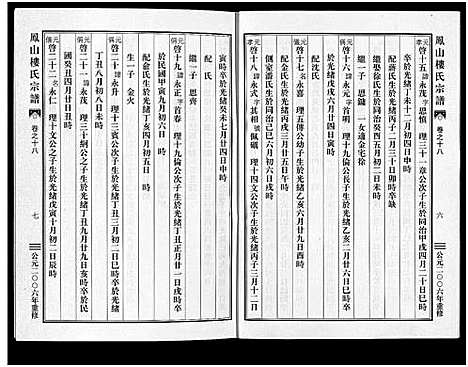 鳳山樓氏宗譜 卷之十八 六 公元二〇〇六年重修
啓十五 永茂 字思慎 理三十一章公次子生於同治甲戌四月二十日巳時
卒於光緒癸未十二月初四日戌時
配蔣氏生於光緒丙子二月三十日卯時卒缺
繼娶徐氏生於同治癸酉五月初二日未時
繼一子 思鏞 一女適金宅徐
啓十六 永元 理十八文公次子生於光緒乙亥二月廿六日巳時卒
於光緒戊寅六月四日廿四日寅時
配沈氏
啓十七 永言 理五傳公幼子生於光緒乙亥六月廿九日酉時
配蔡氏生於光緒丙戌三月廿五日午時
側室潘氏生於同治己巳六月初六日戌時
啓十八 永文 字其相 號佩礪 理十四文公次子生於光緒丙子三月十二日
寅時卒於光緒癸未七月廿四日申時
配氏
繼一子 思齊
啓十九 永正 字首春 理十九倫公次子生於光緒丁丑正月廿一日戌時卒
於民國甲寅九月初九日戌時
配俞氏生於光緒丁亥四月初五日時
生一子 金火
啓二十 永茂 理十三銓公次子生於光緒丁丑三月初二日巳時卒於光緒
丁丑八月初二日時
啓二十一 永茂 理三十綱公之子生於光緒丁丑九月廿九日亥時卒於民
國癸丑四月廿日丑時
啓二十二 名永仁 理十文公之子生於光緒戊寅十月初二日辰時
鳳山樓氏宗譜 卷之十八 七 公元二〇〇六年重修